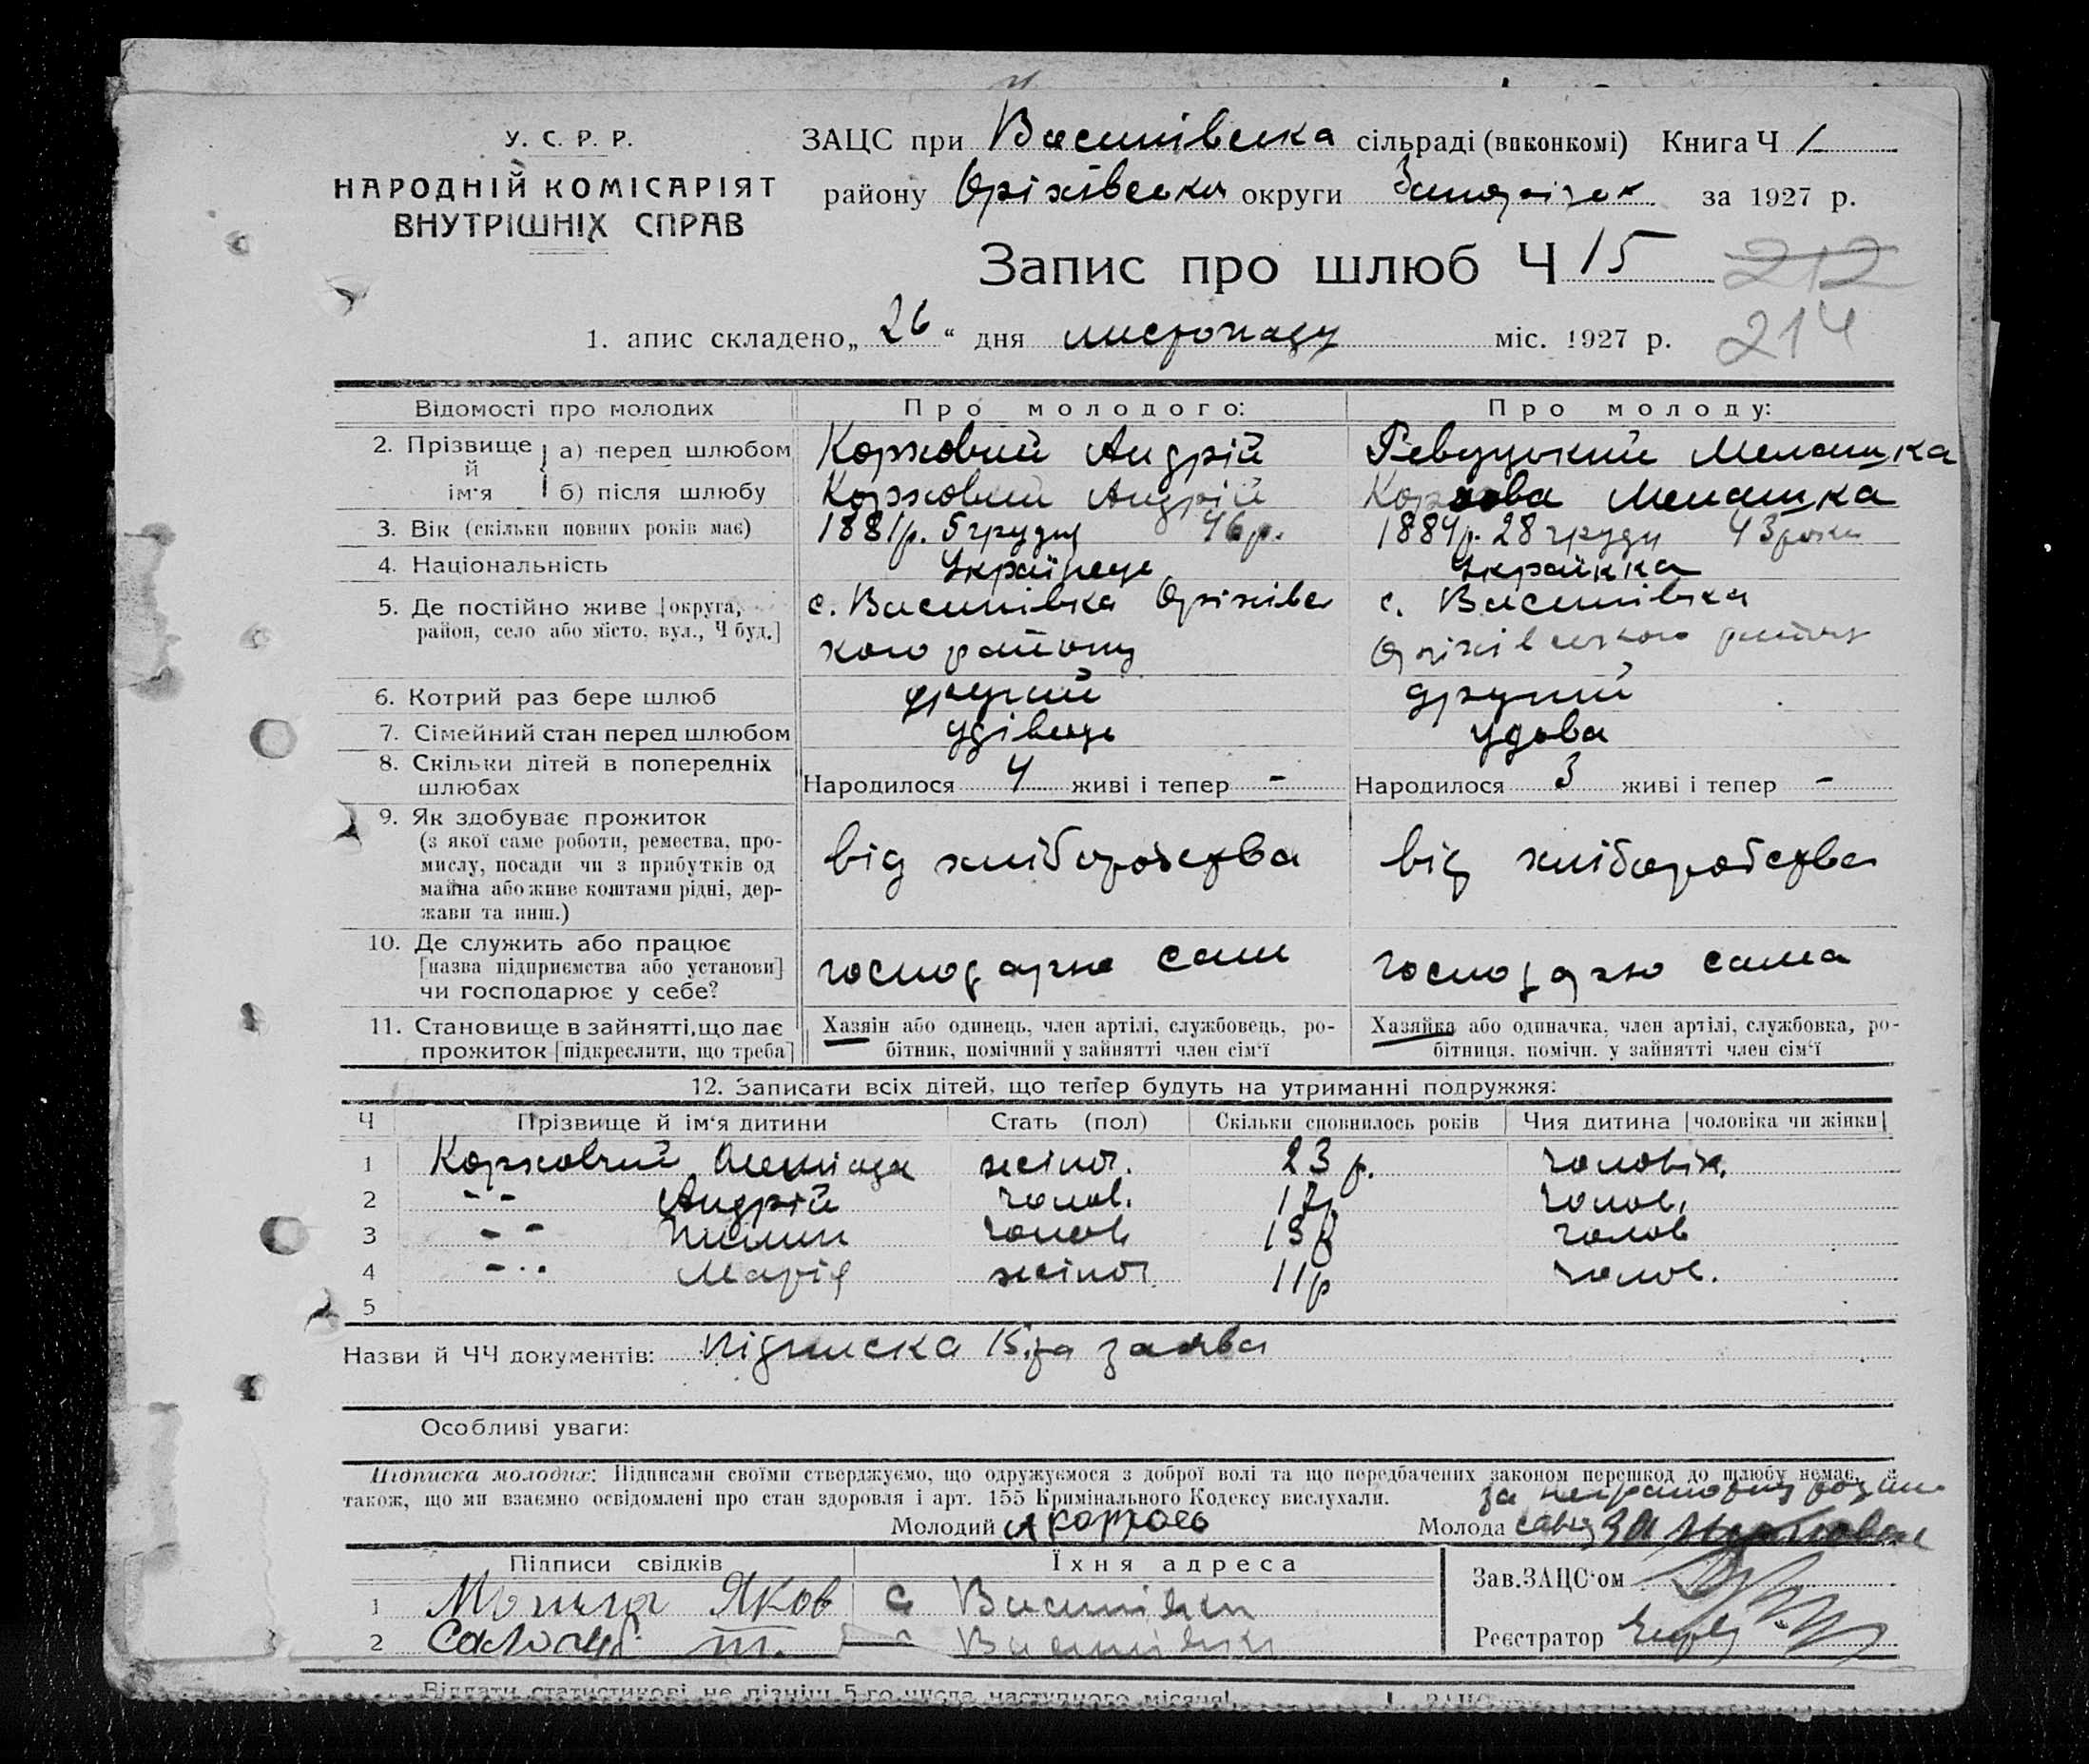 У. С. Р. Р.
НАРОДНІЙ КОМІСАРІЯТ
ВНУТРІШНІХ СПРАВ
ЗАЦС при Василівська сільраді (виконкомі) Книга Ч 1
району Оріхівська округи Запоріжж за 1927 р.
Запис про шлюб Ч 15 212
214
1. апис складено „ 26 “ дня листопаду міс. 1927 р.
Відомості про молодих Про молодого: Про молоду:
2. Прізвище й ім'я а) перед шлюбом Коржовий Андрій Ревуцький Мелашка
б) після шлюбу Коржовий Андрій Коржова Мелашка
3. Вік (скільки повних років має) 1881р. 5 грудня 46 р. 1884р. 28 грудн 43 роки
4. Національність Українець Українка
5. Де постійно живе [округа, с. Василівка Оріхівс с. Василівка
район, село або місто, вул., Ч буд.] кого району Оріхівського району
6. Котрий раз бере шлюб другий другий
7. Сімейний стан перед шлюбом удівець удова
8. Скільки дітей в попередніх
шлюбах Народилося 4 живі і тепер - Народилося 3 живі і тепер -
9. Як здобуває прожиток
(з якої саме роботи, ремества, про-
мислу, посади чи з прибутків од
майна або живе коштами рідні, дер-
жави та инш.)
від хліборобства від хліборобства
10. Де служить або працює
[назва підприємства або установи]
чи господарює у себе?
господарює сам господарює сама
11. Становище в зайнятті, що дає Хазяін або одинець, член артілі, службовець, ро- Хазяйка або одиначка, член артілі, службовка, ро-
прожиток [підкреслити, що треба] бітник, помічний у зайнятті член сім'ї бітниця, помічн. у зайнятті член сім'ї
12. Записати всіх дітей, що тепер будуть на утриманні подружжя:
Ч Прізвище й ім'я дитини Стать (пол) Скільки сповнилось років Чия дитина [чоловіка чи жінки]
1 Коржовий жіноч. 23 р. чоловік.
2 -- Андрій чолов. 17р чолов.
3 -- Пилип чолов 13р чолов
4 -- Марія жіноч. 11р чолов.
5
Назви й ЧЧ документів: підписка заява
Особливі уваги:
Підписка молодих: Підписами своїми стверджуємо, що одружуємося з доброї волі та що передбачених законом перешкод до шлюбу немає, а
також, що ми взаємно освідомлені про стан здоровля і арт. 155 Кримінального Кодексу вислухали.
за неграмотну
Молодий А Коржов Молода
Підписи свідків Їхня адреса
1 Яков с Василівки
2 Василівки
Зав.ЗАЦС'ом
Реєстратор
Віддати статистикові не пізніш 5-го числа наступного місяця!